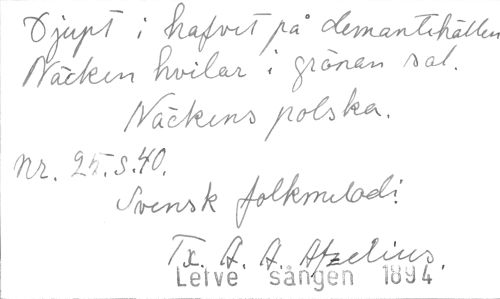 Djupt i hafvet på demantehällen
Näcken hvilar i grönan sal.
Näckens polska.
Nr. 25. s. 40.
Svensk folkmelodi.
Tx. A. A. Afzelius.
Lefve sången 1894.